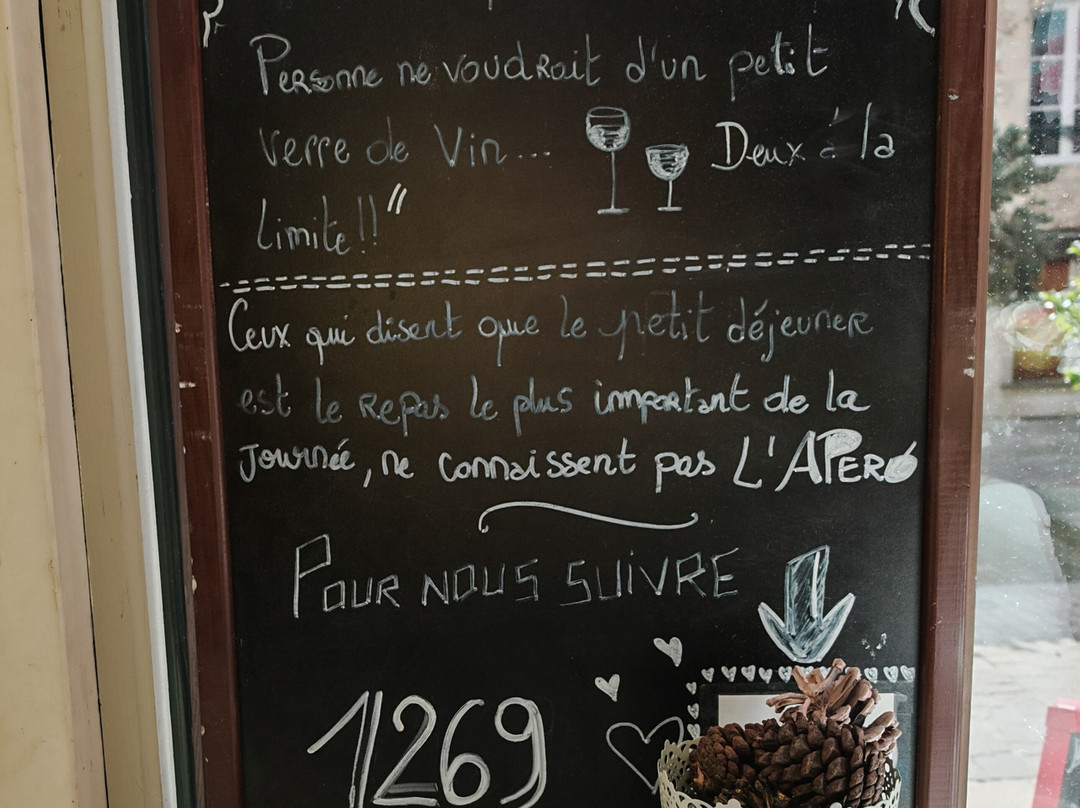 Personne ne voudrait d'un petit
verre de Vin... Deux à la
limite!!"
Ceux qui disent que le petit déjeuner
est le Repas le plus important de la
Journée, ne connaissent pas L'APERO
POUR NOUS SUIVRE
1269